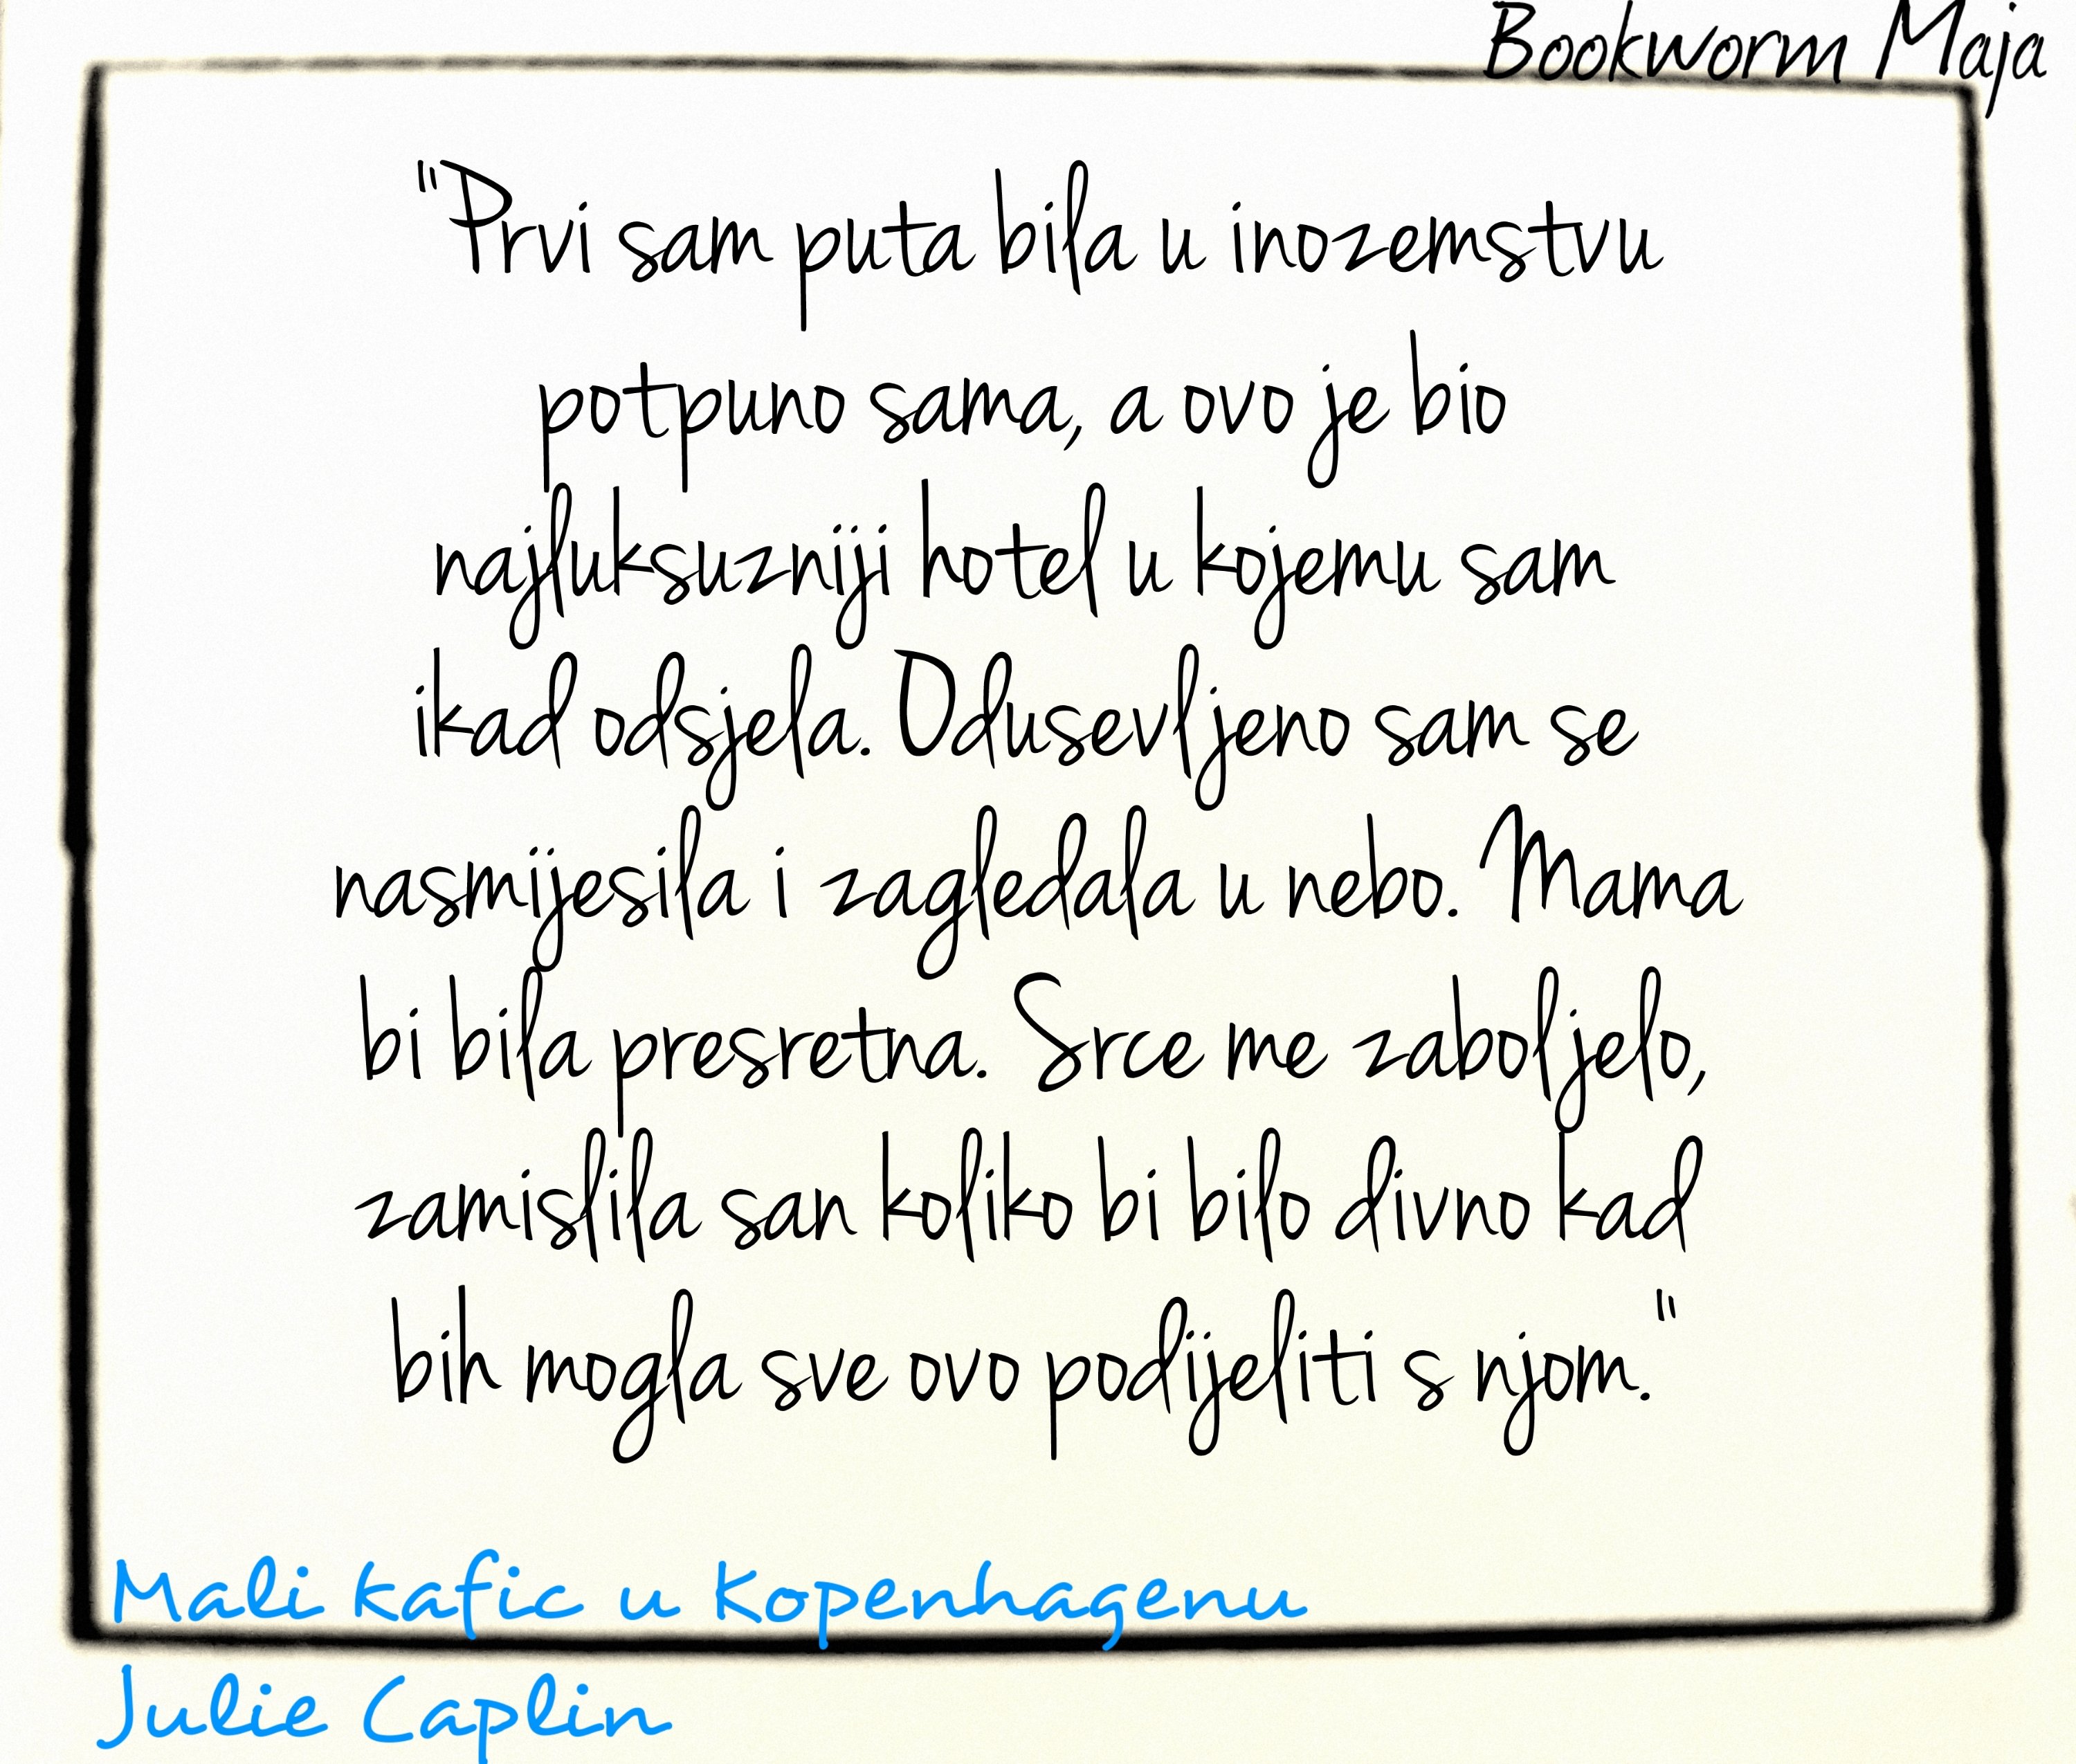 Bookworm Maja
"Prvi sam puta bila u inozemstvu
potpuno sama, a ovo je bio
najluksuzniji hotel u kojemu sam
ikad odsjela. Odusevljeno sam se
nasmijesila i zagledala u nebo. Mama
bi bila presretna. Srce me zaboljelo,
zamislila san koliko bi bilo divno kad
bih mogla sve ovo podijeliti s njom."
Mali kafic u Kopenhagenu
Julie Caplin